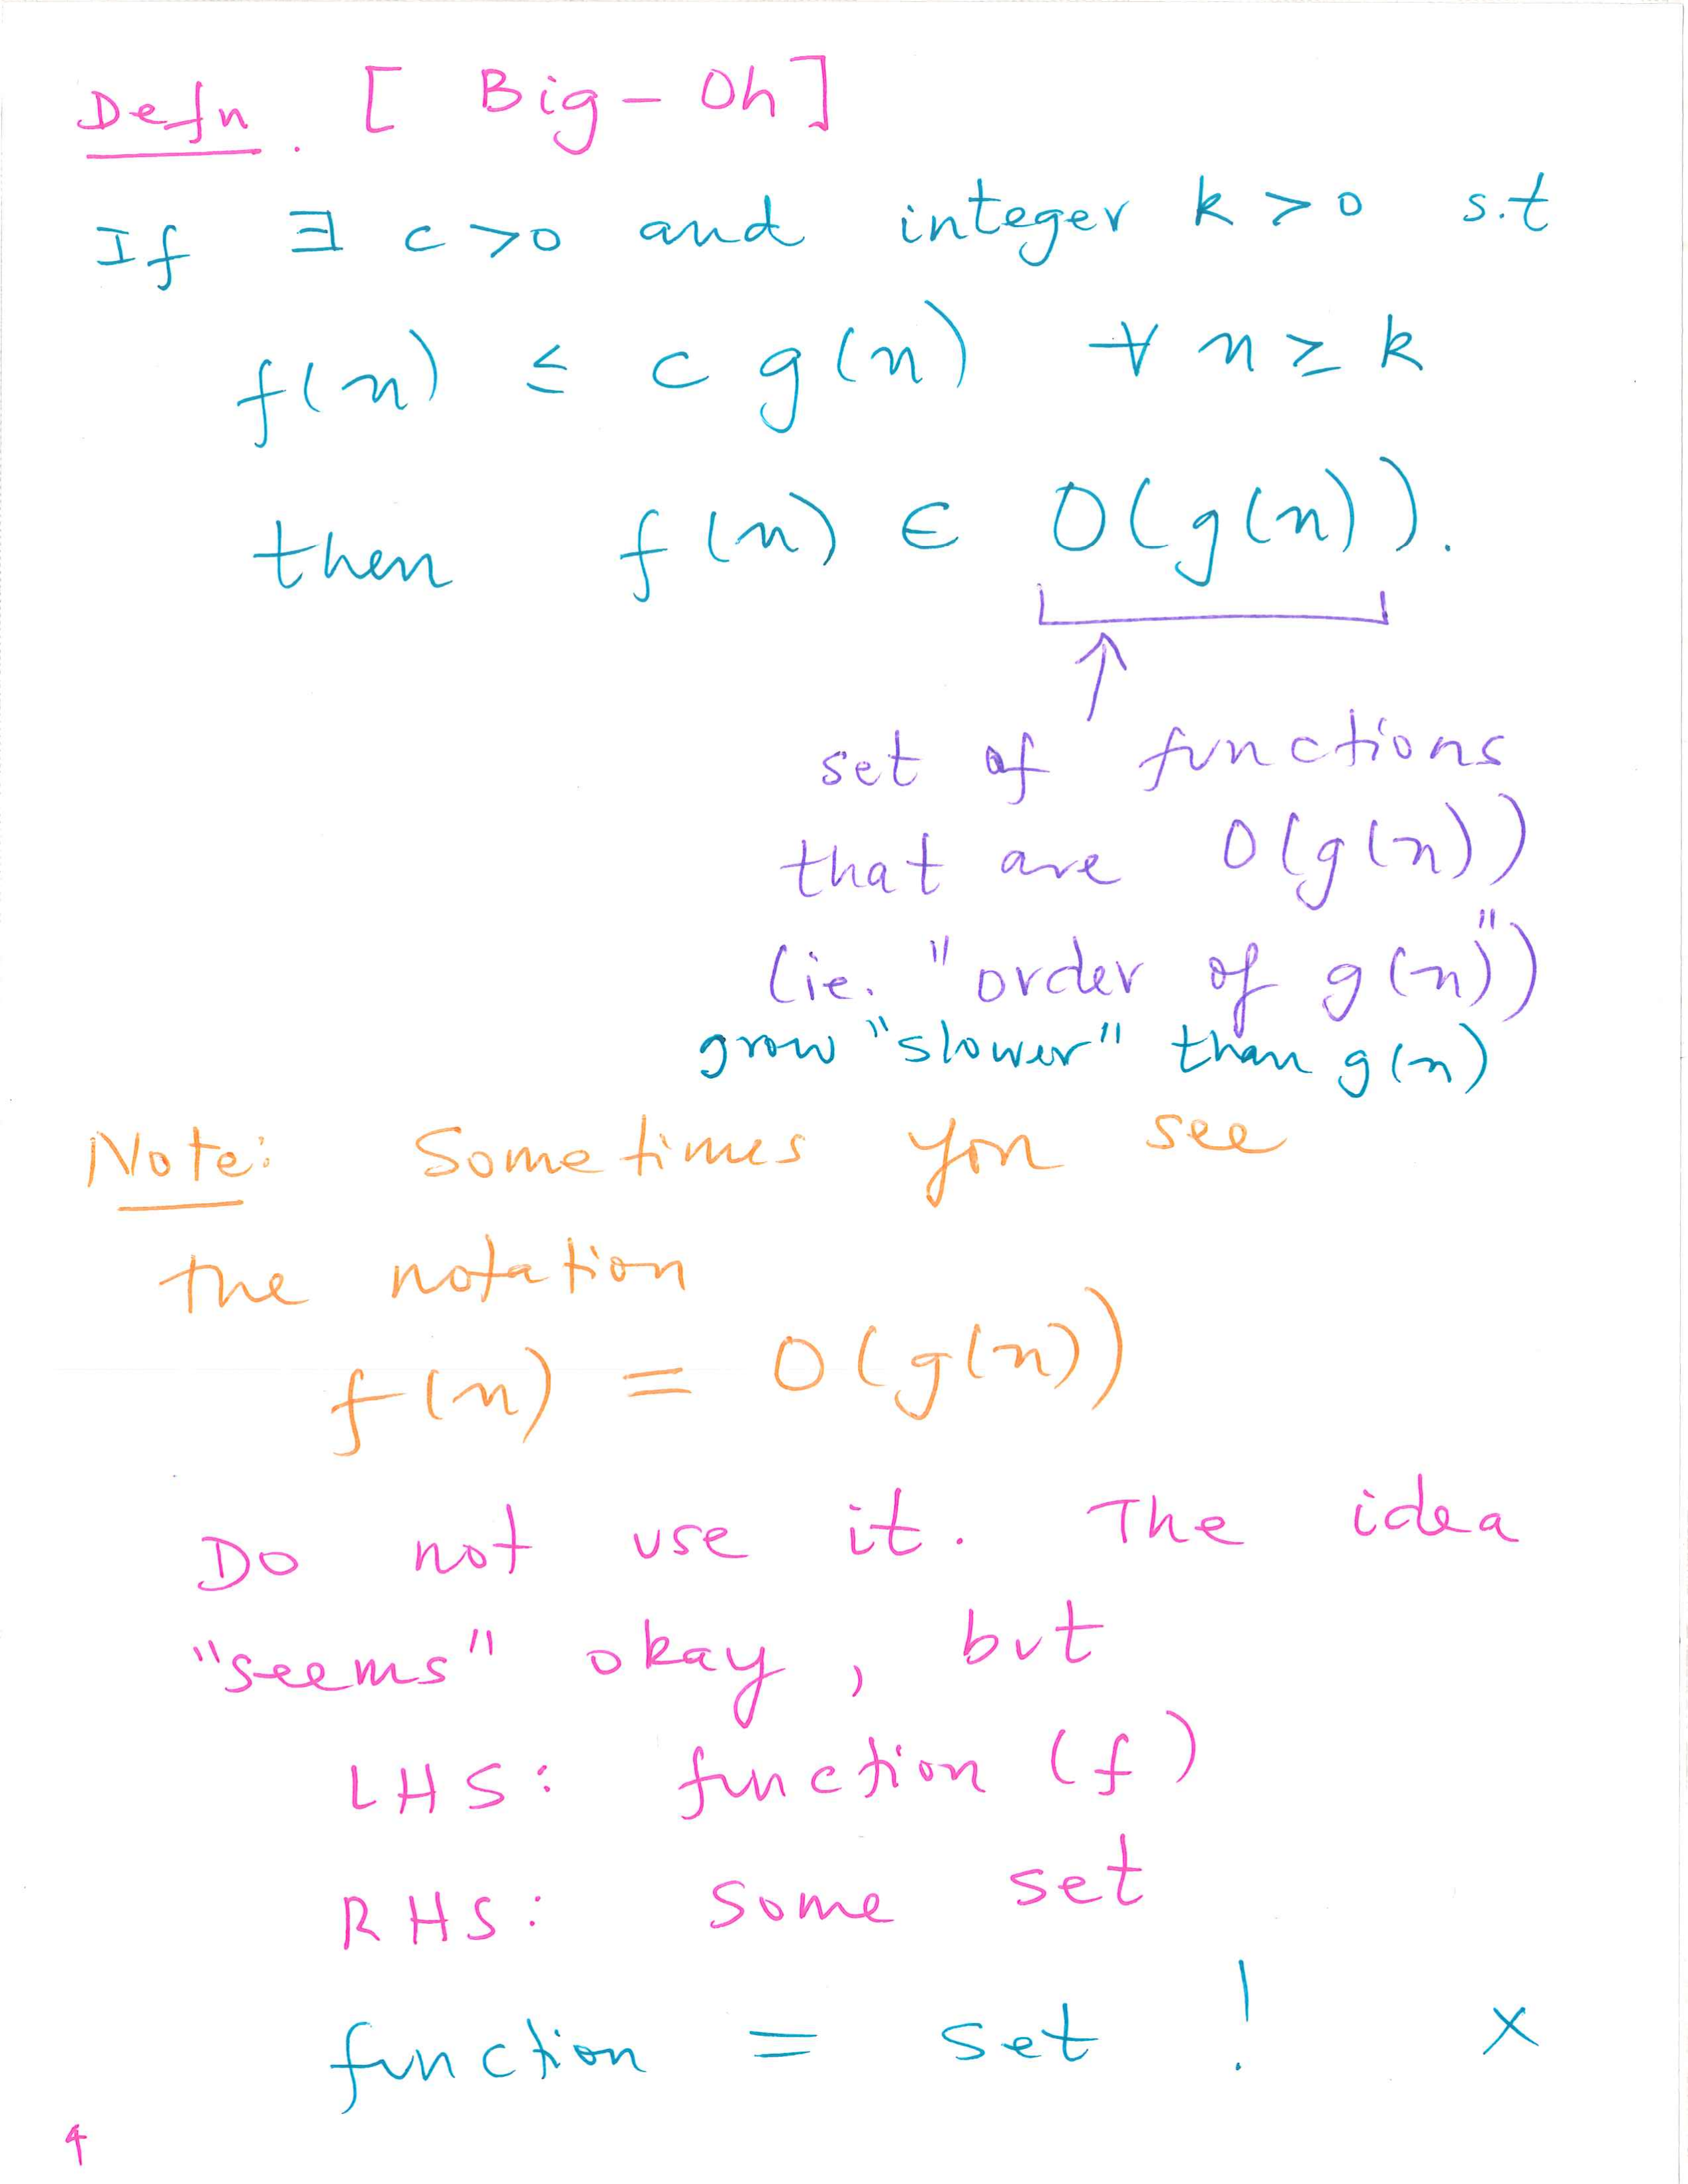 Defn. [Big-Oh]
If ∃ c>0 and integer k>0 s.t
f(n) ≤ c g(n) ∀ n ≥ k
then f(n) ∈ O(g(n)).
↑
set of functions
that are O(g(n))
(ie. "order of g(n)")
grow "slower" than g(n)
Note: Sometimes you see
the notation
f(n) = O(g(n))
Do not use it. The idea
"seems" okay, but
LHS: function (f)
RHS: some set
function = set ! x
4